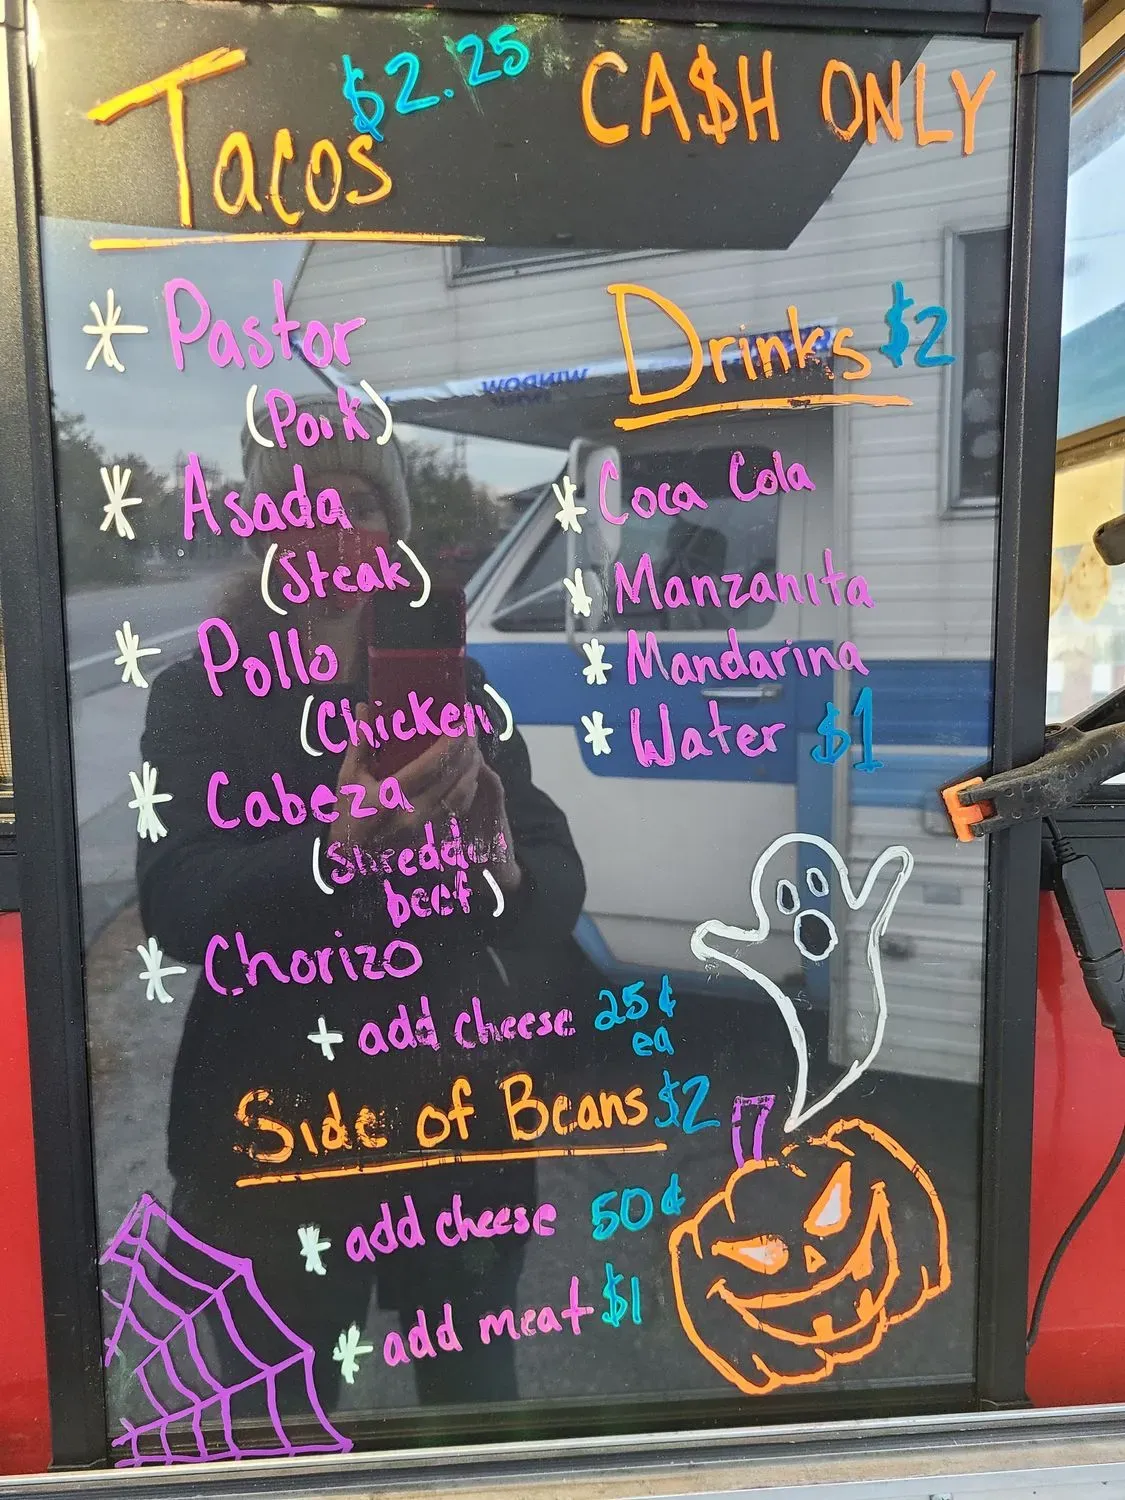 Tacos $2.25
CA$H ONLY
* Pastor
(Pork)
* Asada
(Steak)
* Pollo
(Chicken)
* Cabeza
(Shredded
beef)
* Chorizo
+ add cheese 25¢
ea
Side of Beans $2
* add cheese 50¢
* add meat $1
Drinks $2
* Coca Cola
* Manzanita
* Mandarina
* Water $1
WINDOW